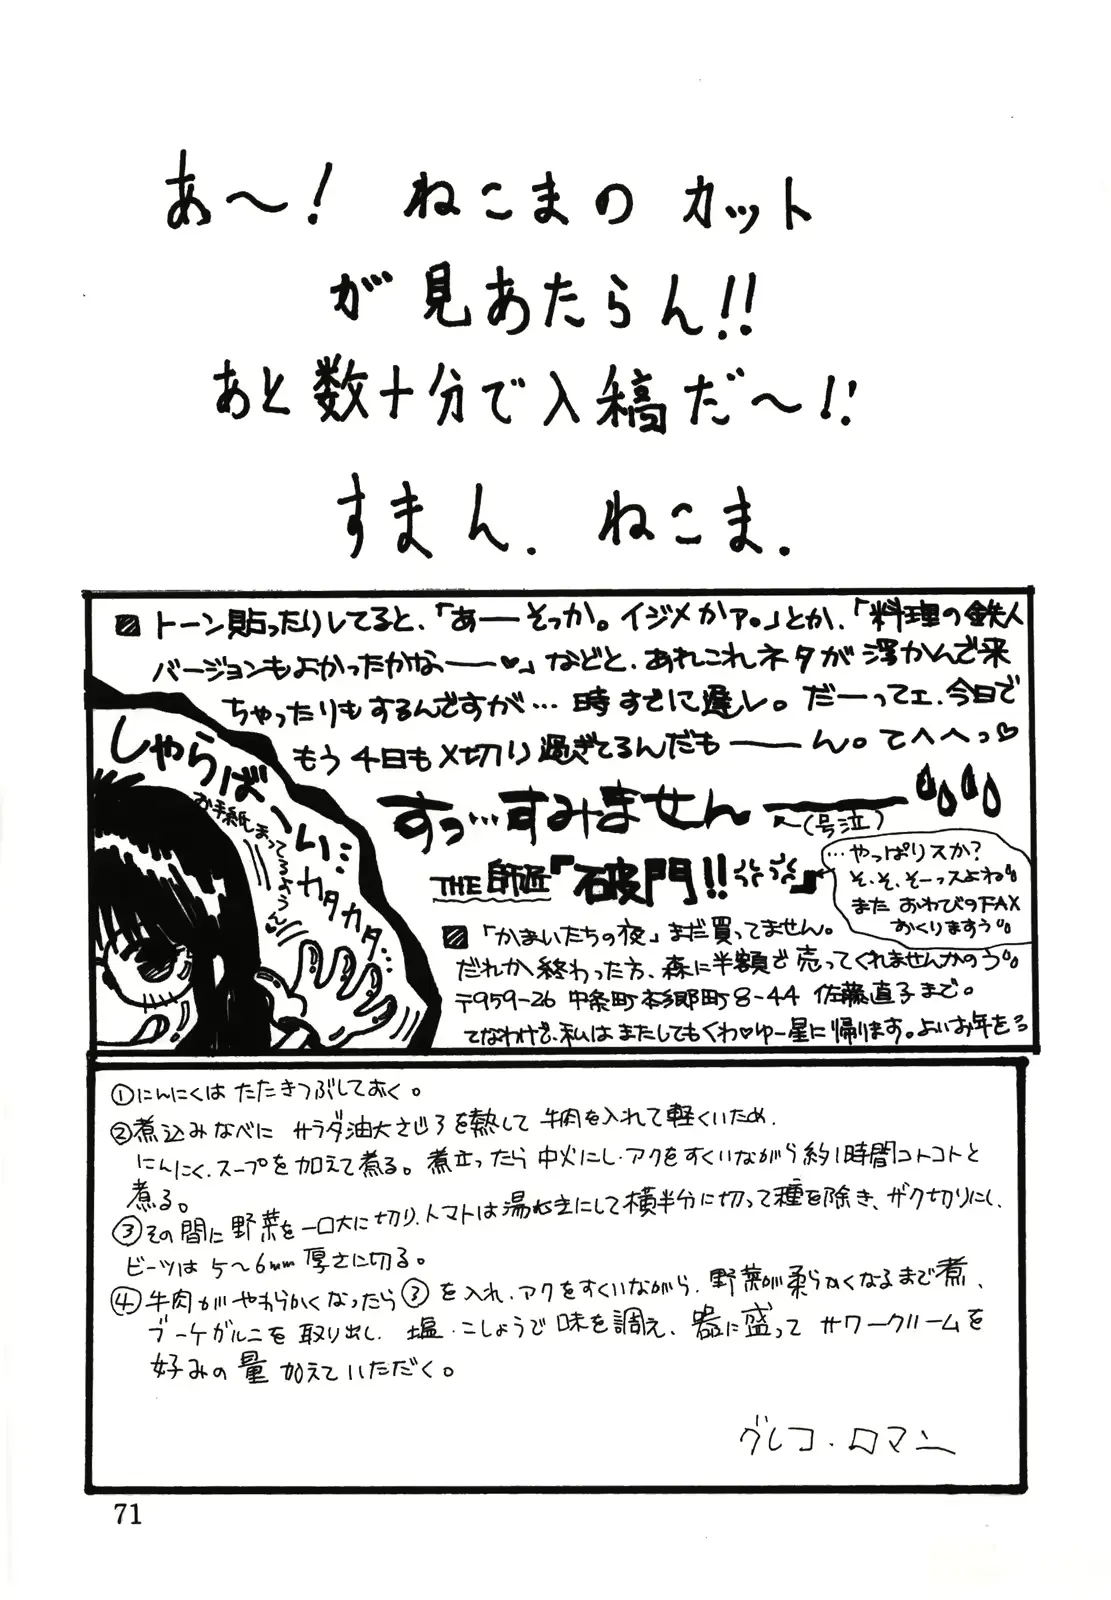 あ～! ねこまの カット
が見あたらん!!
あと数十分で入稿だ～!!
すまん. ねこま.
▨ トーン貼ったりしてると、「あーそっか。イジメかァ。」とか、「料理の鉄人
バージョンもよかったかなー♡」などと、あれこれネタが浮かんで来
ちゃったりもするんですが… 時すでに遅し。だーってェ、今日で
もう4日も〆切り過ぎてるんだもーん。てへへっ♡
すっ…すみませんーー
←(号泣)
THE 師匠「破門!!」
…やっぱりスか?
そ、そ、そーっスよね
また おわびのFAX
おくりますぅ
しゃらばーい…
お手紙まってるよぅん♡
カタカタ…
▨ 「かまいたちの夜」まだ買ってません。
だれか終わった方、森に半額で売ってくれませんかのう
〒959-26 中条町本郷町8-44 佐藤直子まで。
てなわけで、私はまたしてもくわ♡ゆー星に帰ります。よいお年をろ
①にんにくはたたきつぶしておく。
②煮込みなべに サラダ油大さじ3を熱して 牛肉を入れて軽くいため、
にんにく、スープを加えて煮る。煮立ったら中火にし、アクをすくいながら約1時間コトコトと
煮る。
③その間に野菜を一口大に切り、トマトは湯むきにして横半分に切って種を除き、ザク切りにし、
ビーツは5～6mm厚さに切る。
④牛肉がやわらかくなったら③を入れ、アクをすくいながら、野菜が柔らかくなるまで煮、
ブーケガルニを取り出し、塩・こしょうで味を調え、器に盛って サワークリームを
好みの量 加えていただく。
グレコ・ロマン
71